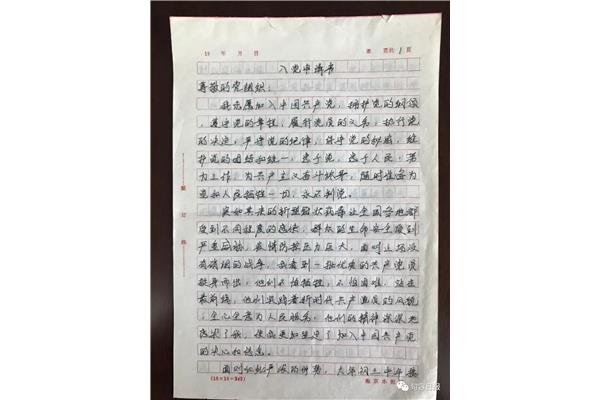 19 年 月 日 第 页共 1 页
入党申请书
尊敬的党组织：
我志愿加入中国共产党，拥护党的纲领
，遵守党的章程，履行党员的义务，执行党
的决定，严守党的纪律，保守党的秘密，维
护党的团结和统一，忠于党，忠于人民，努
力工作，为共产主义奋斗终身，随时准备为
党和人民牺牲一切，永不判党。
突如其来的新型冠状病毒让全国各地都
受到不同程度的
，群众的生命安全受到
严重威胁，疫情防控压力巨大，面对这场没
有硝烟的战争，我看到一批优秀的共产党员
挺身而出，他们不怕牺牲，不怕困难，站在
最前线，他们
着新时代共产党员的风貌
，全心全意为人民服务。他们的精神深深地
了我，使我更加坚定了加入中国共产党
的决心和信念。
面对如此严峻的形势，
装 订 线
(15×19=285)
南京水
句容日报